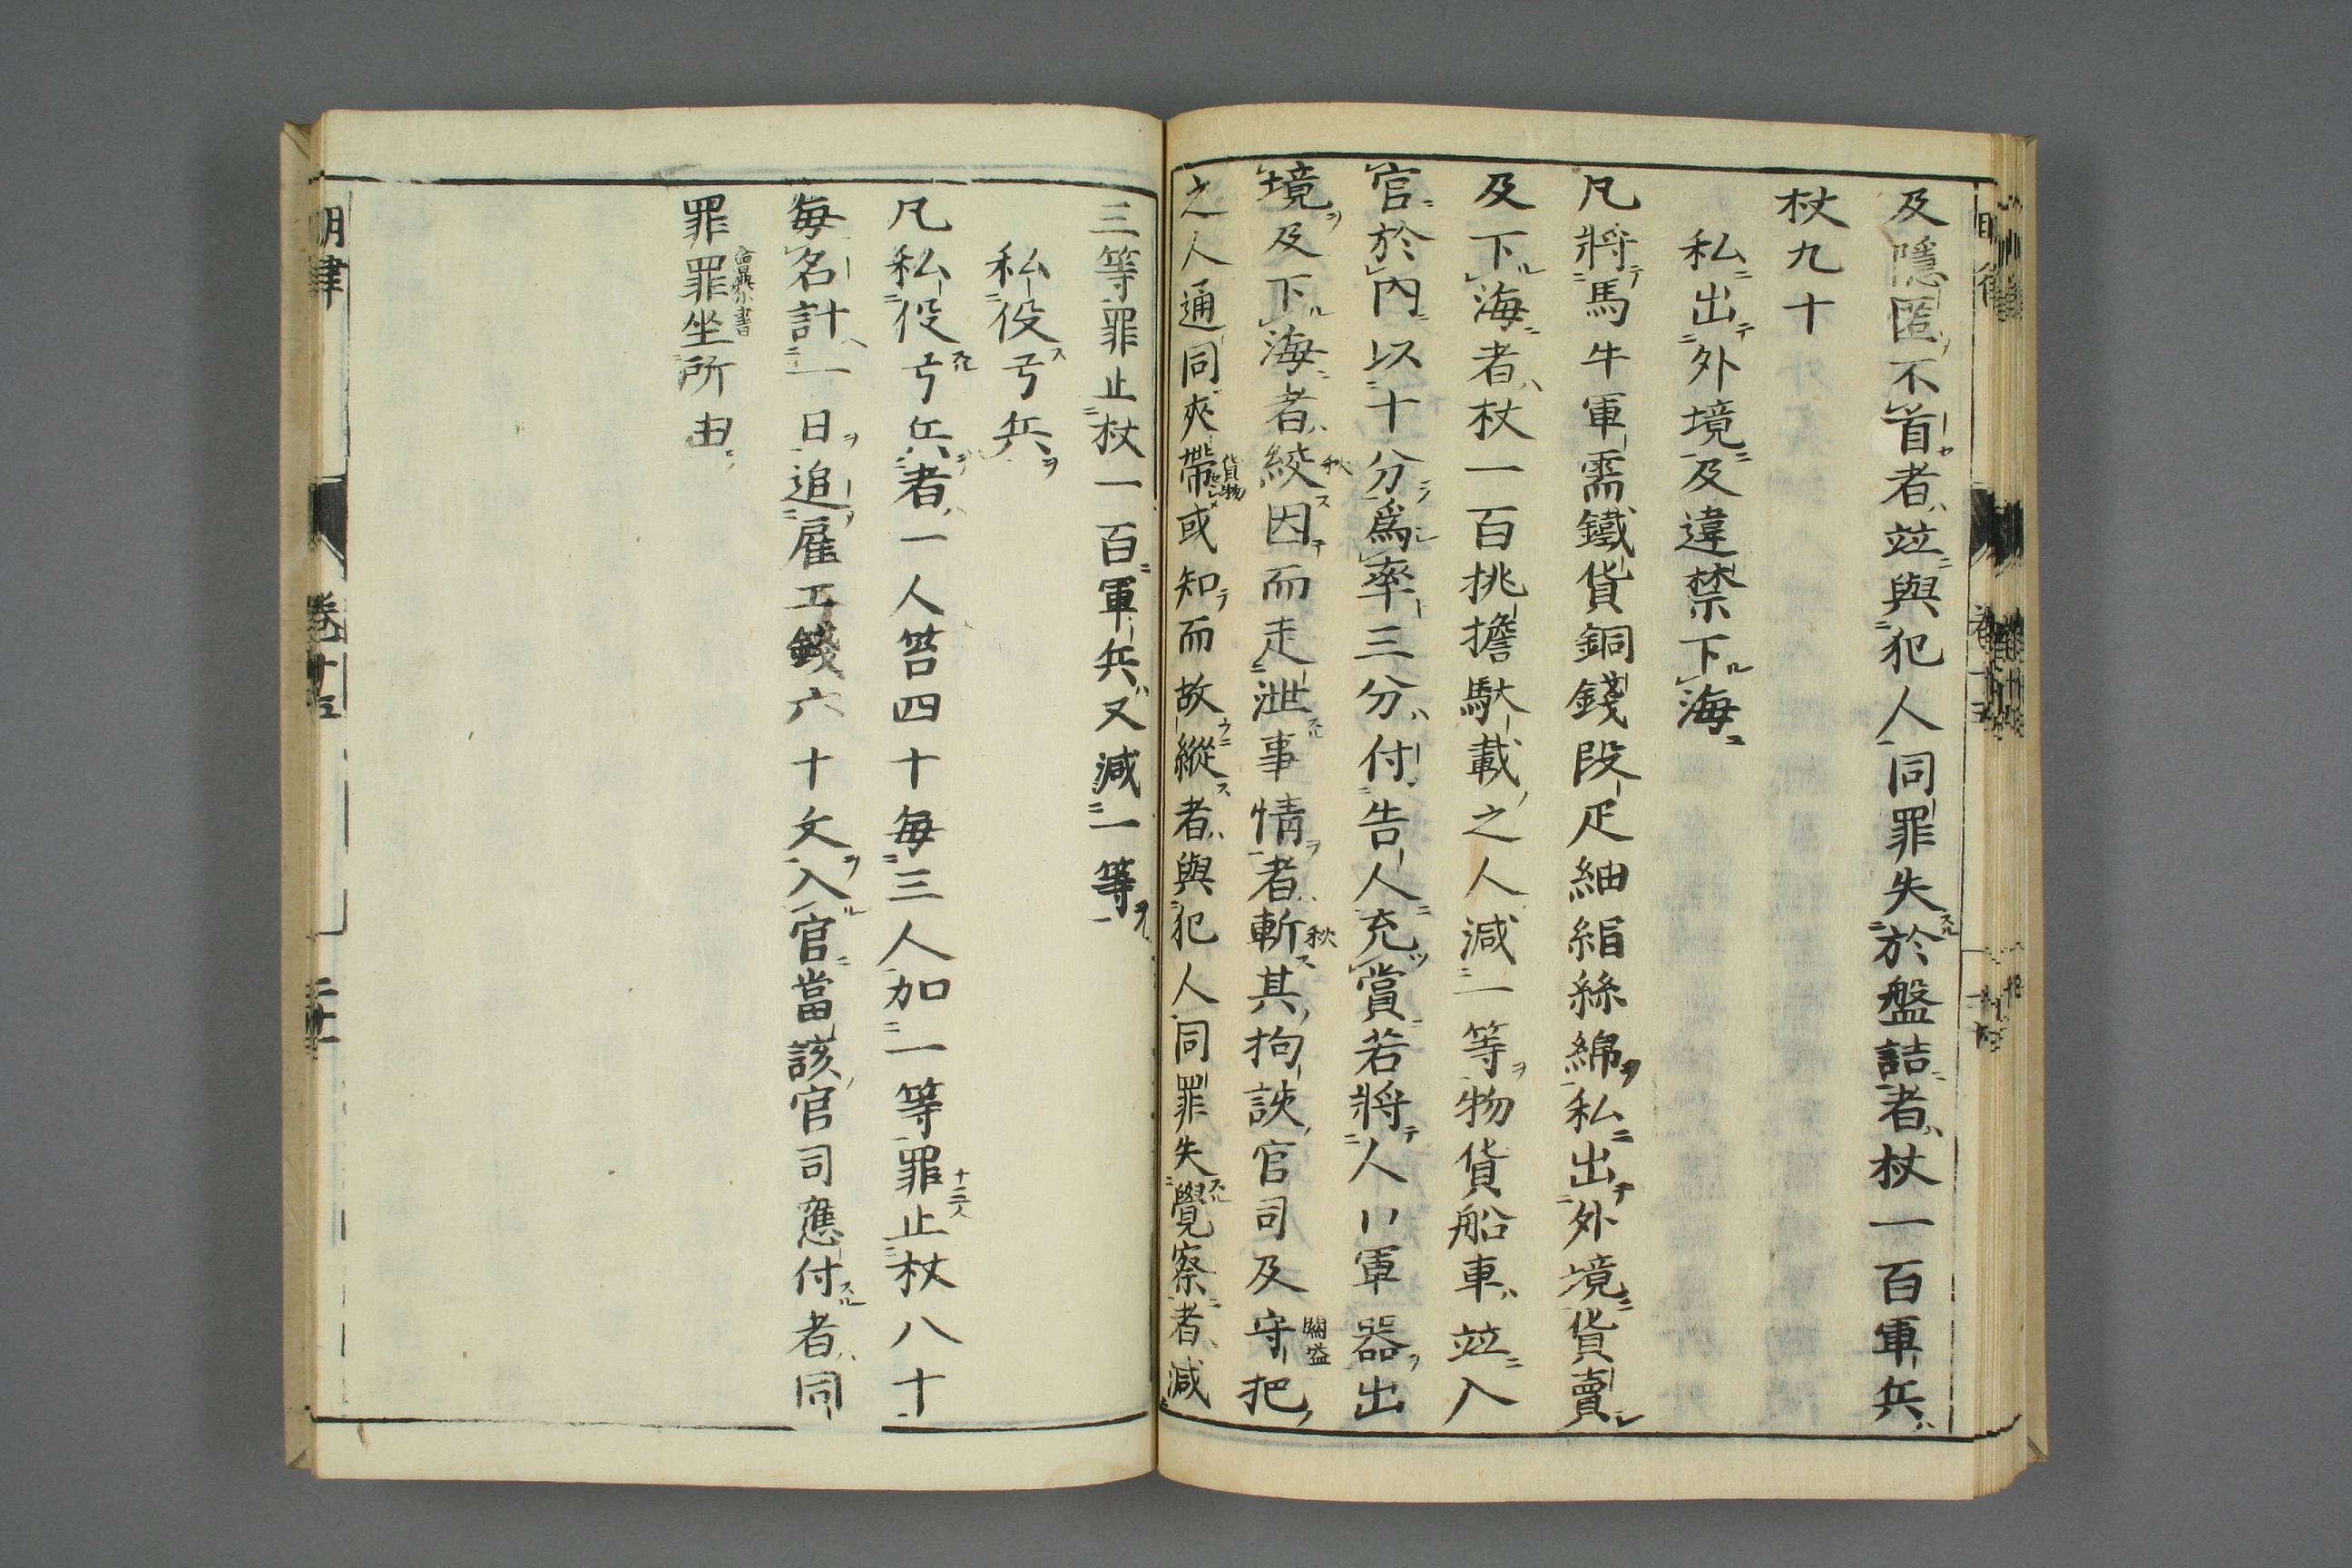 及隱匿不首者竝與犯人同罪失於盤詰者杖一百軍兵
杖九十
私出外境及違禁下海
凡將馬牛軍需鐵貨銅錢段疋紬絹絲綿私出外境貨賣
及下海者杖一百挑擔馱載之人減一等物貨船車竝入
官於內以十分爲率三分付告人充賞若將人口軍器出
境及下海者絞因而走泄事情者斬其拘該官司及守把
之人通同夾帶或知而故縱者與犯人同罪失覺察者減
三等罪止杖一百軍兵又減一等
私役弓兵
凡私役弓兵者一人笞四十每三人加一等罪止杖八十
每名計一日追雇工錢六十文入官當該官司應付者同
罪罪坐所由
明律 卷十五